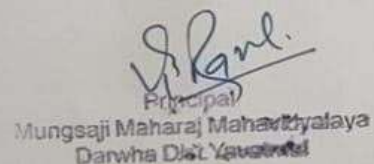 Principal
Mungsaji Maharaj Mahavidyalaya
Darwha Dist. Yavatmal